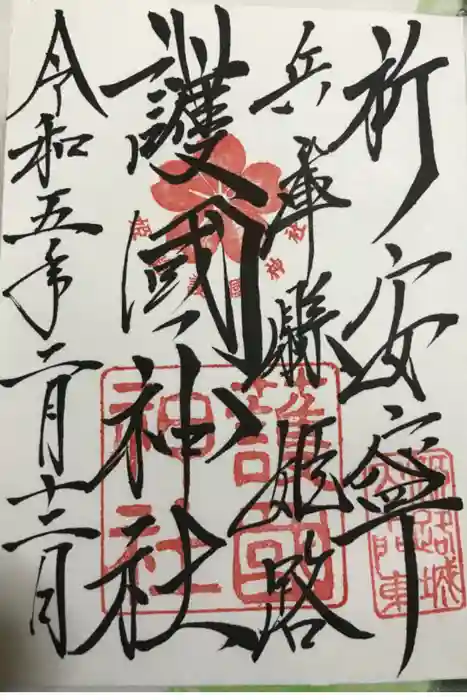 祈安寧
兵庫縣姫路
護國神社
令和五年二月十二日
姫路護國神社
護國
神社
姫路城